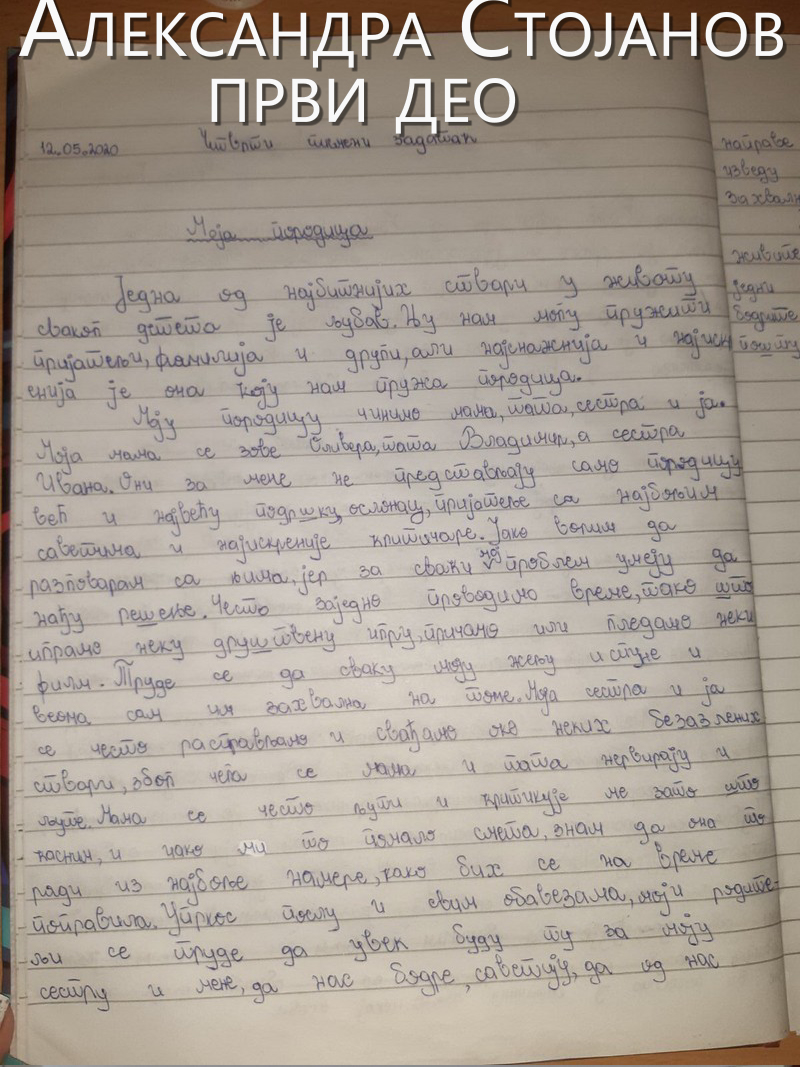 Александра Стојанов
први део
12.05.2020 Четврти писмени задатак
Моја породица
Једна од најбитнијих ствари у животу
сваког детета је љубав. Њу нам могу пружити
пријатељи, фамилија и други, али најснажнија и најискр
енија је она коју нам пружа породица.
Моју породицу чинимо мама, тата, сестра и ја.
Моја мама се зове Оливера, тата Владимир, а сестра
Ивана. Они за мене не представљају само породицу
већ и највећу подршку, ослонац, пријатеље са најбољим
саветима и најискреније критичаре. Јако волим да
разговарам са њима, јер за сваки мој проблем умеју да
нађу решење. Често заједно проводимо време, тако што
играмо неку друштвену игру, причамо или гледамо неки
филм. Труде се да сваку моју жељу испуне и
веома сам им захвална на томе. Моја сестра и ја
се често расправљамо и свађамо око неких безазлених
ствари, због чега се мама и тата нервирају и
љуте. Мама се често љути и критикује ме зато што
касним, и иако ми то помало смета, знам да она то
ради из најбоље намере, како бих се на време
поправила. Упркос послу и свим обавезама, моји родите-
љи се труде да увек буду ту за моју
сестру и мене, да нас бодре, саветују, да од нас
направе
изведу
захвалн
живите
једни
бодрите
пошту